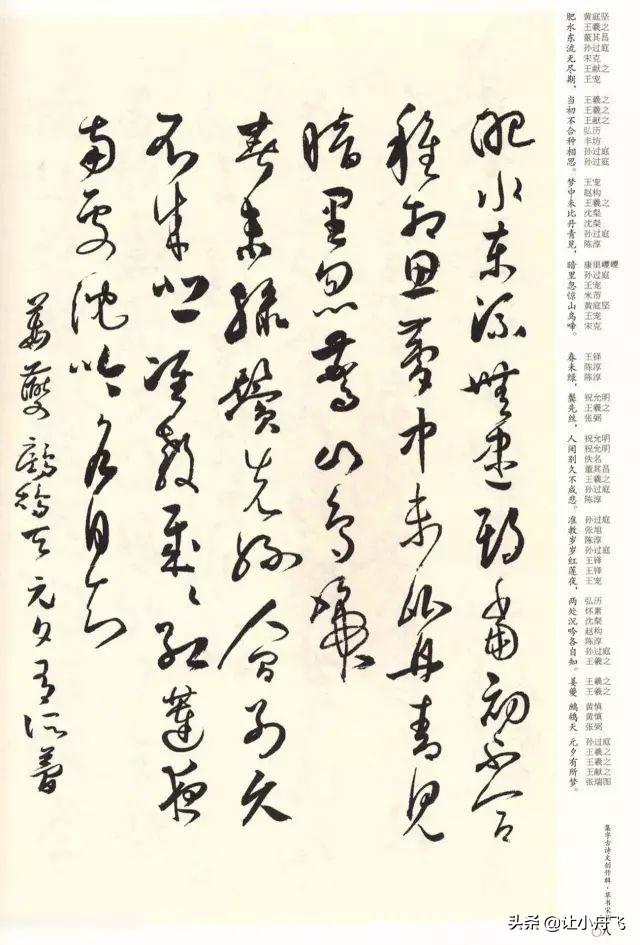 黄庭坚 王羲之 董其昌 孙过庭 宋克 王献之 王宠
肥水东流无尽期，
王羲之 王羲之 王献之 弘历 丰坊 孙过庭 孙过庭
当初不合种相思。
王宠 赵构 王羲之 沈粲 沈粲 孙过庭 陈淳
梦中未比丹青见，
康里巎巎 孙过庭 王宠 米芾 黄庭坚 王宠 宋克
暗里忽惊山鸟啼。
王铎 陈淳 陈淳
春未绿，
祝允明 王羲之 张弼
鬓先丝，
祝允明 祝允明 佚名 董其昌 王羲之 孙过庭 陈淳
人间别久不成悲。
孙过庭 张旭 陈淳 孙过庭 王铎 王铎 王宠
谁教岁岁红莲夜，
弘历 怀素 沈粲 赵构 陈淳 孙过庭 王羲之
两处沉吟各自知。
王羲之 王羲之
姜夔
黄慎 黄慎 张弼
鹧鸪天
孙过庭 王羲之 王羲之 王献之 张瑞图
元夕有所梦。
集字古诗文创作辑·草书宋
〇八
肥水東流無盡期當初不合
種相思夢中未比丹青見
暗里忽驚山鳥啼
春未綠鬢先絲人間別久
不成悲誰教歲歲紅蓮夜
兩處沈吟各自知
姜夔鷓鴣天元夕有所夢
头条 @让小舟飞